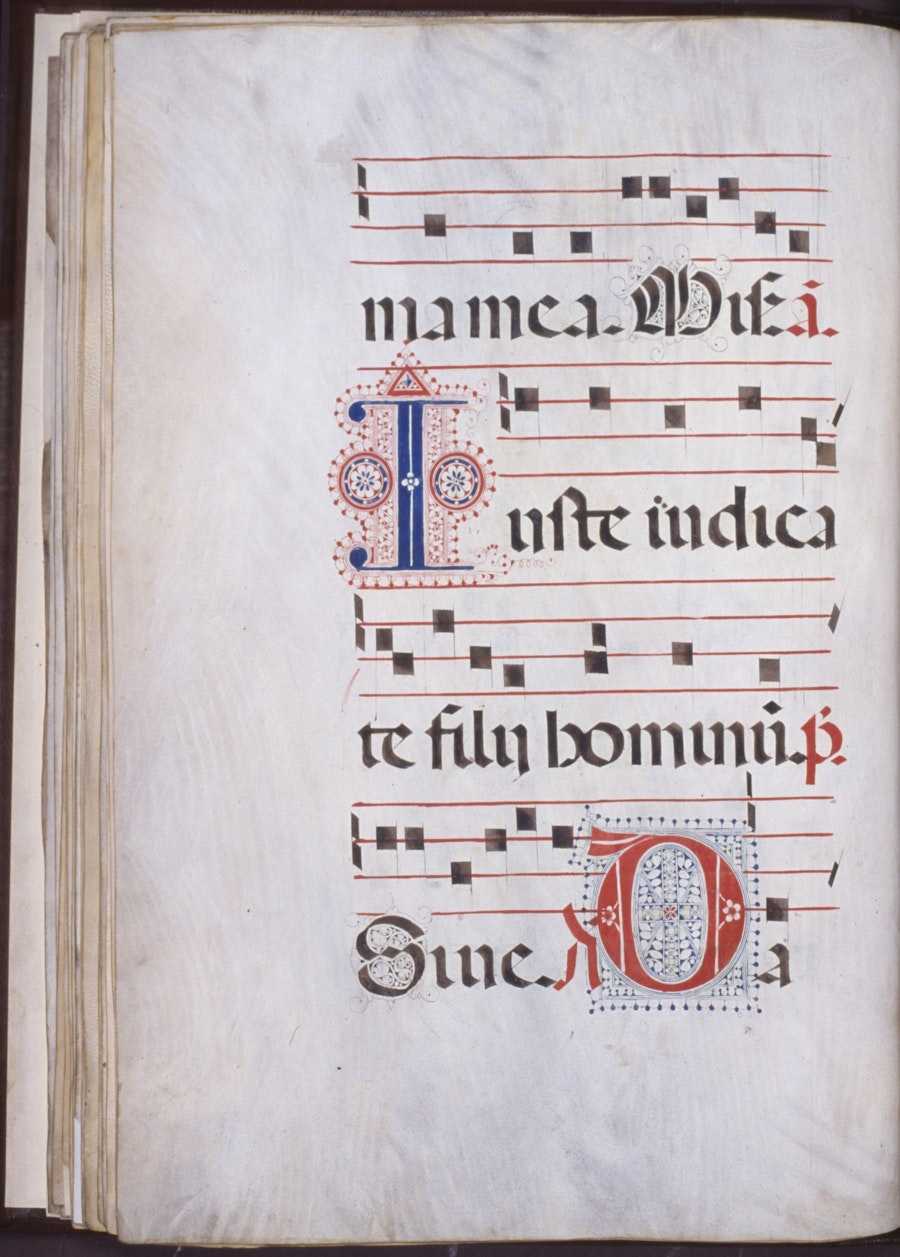 ma mea. Mise a.
Iuste iudica
te filij hominū. p̄.
Si ue. A Da